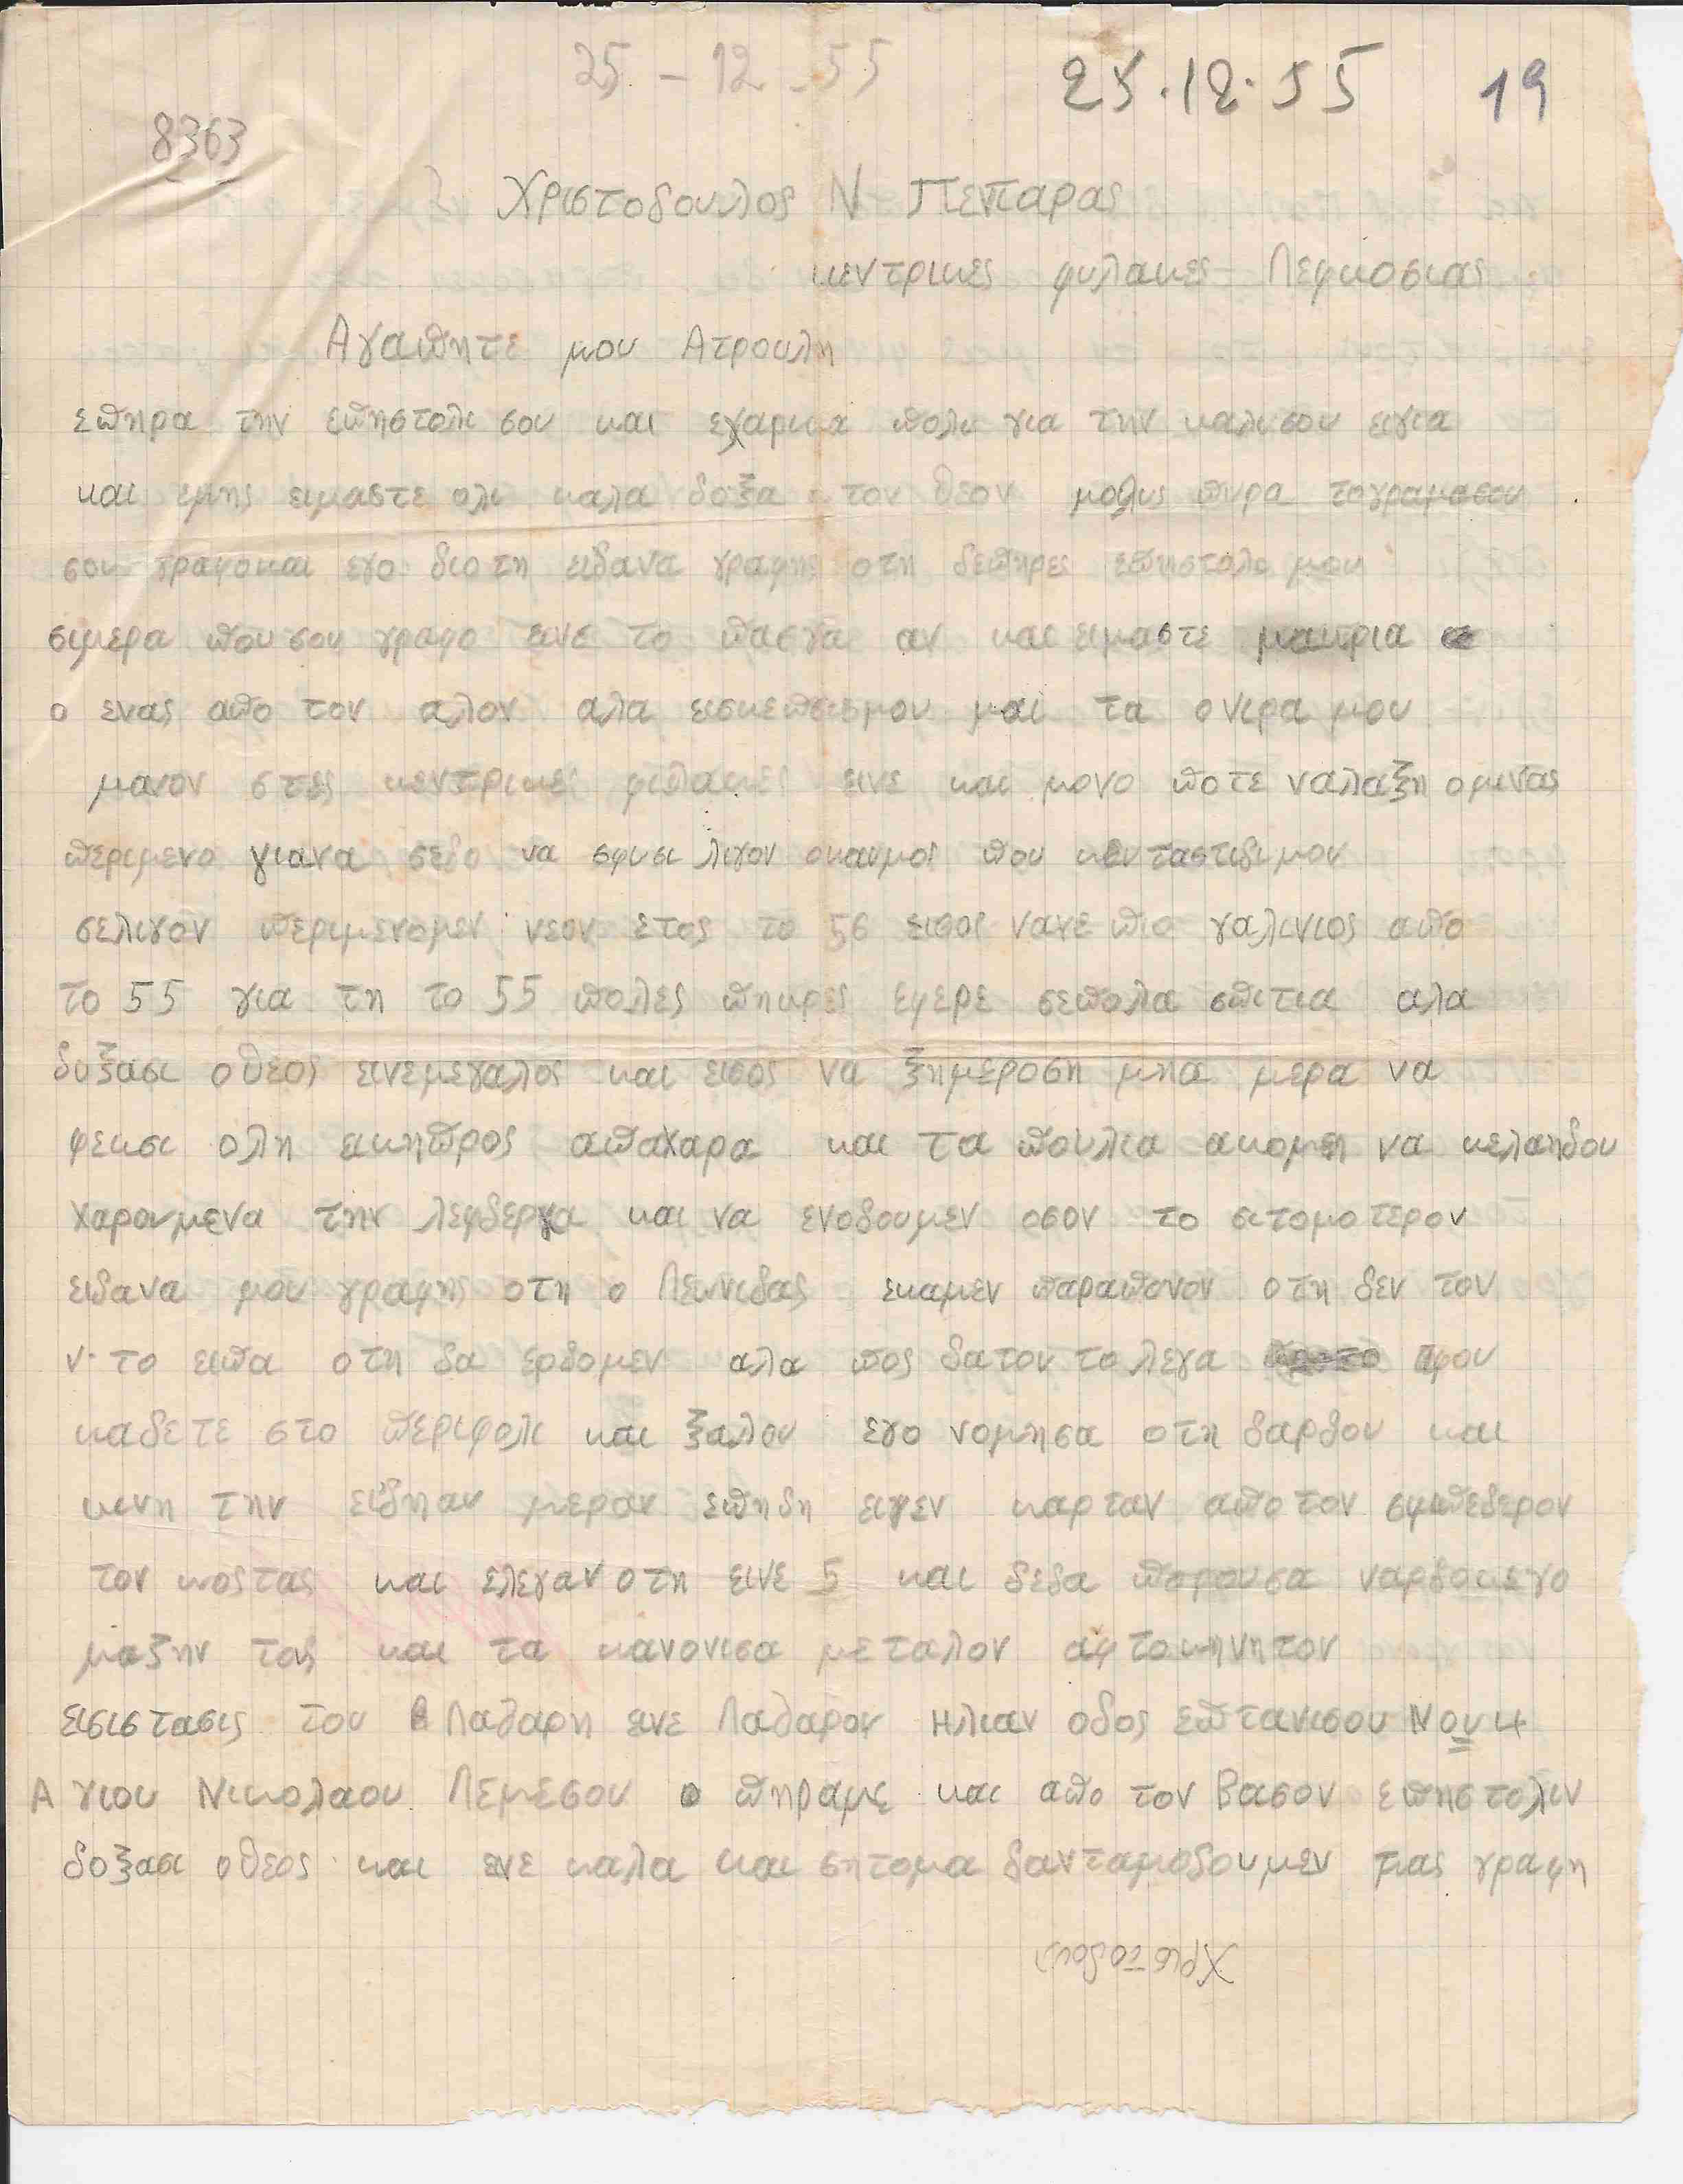 25 - 12 - 55
25.12.55 19
8363
Χριστοδουλος Ν Πεπαρας
κεντρικες φυλακες Λεφκοσιας
Αγαπητε μου Ατρουλη
επηρα την επηστολι σου και εχαρικα πολι για την καλισου ειγια
και εμης ειμαστε ολι καλα δοξα τον θεον μολις πιρα τογραμασου
σου γραφοκαι εγο διοτη ειδανα γραφης οτη δεπηρες επηστολι μου
σιμερα που σου γραφο εινε το πασχα αν και ειμαστε μακρια
ο ενας απο τον αλον αλα εισκεπσισμου και τα ονιρα μου
μονον στες κεντρικες φιλακες εινε και μονο ποτε ναλαξη ομινας
περιμενο γιανα σεδο να σφισι λιγον οκαυμος που κενταστιδιμου
σελιγον περιμενομεν νεον ετος το 56 εισος νανε πιο γαλινιος απο
το 55 για τη το 55 πολες πηκρες εφερε σεπολα σπιτια αλα
δοξασι οθεος εινεμεγαλος και εισος να ξημεροση μηα μερα να
φεκσι ολη εικηπρος απαχαρα και τα πουλια ακομη να κελαηδου
χαρουμενα την λεφδεργα και να ενοδουμεν οσον το σιτομοτερον
ειδανα μου γραφης οτη ο Λεωνιδας εκαμεν παραπονον οτη δεν τον
ν το ειπα οτη δα ερδομεν αλα πος δατον το λεγα αφου
καδετε στο περιφολι και ξαλου εγο νομησα οτη δαρδου και
κινη την ειδηαν μεραν επηδη ειχεν καρταν αποτον σιμπεδερον
τον κοστας και ελεγαν οτη εινε 5 και δεδα πορουσα ναρδοκεγο
μαζην τος και τα κανονισα μεταλον αφτοκηνητον
εισιστασις του Λαζαρη εινε Λαζαρον Ηλιαν οδος επτανισου Νου 4
Αγιου Νικολαου Λεμεσου πηραμε και απο τον Βασον επηστολιν
δοξασι οθεος και ενε καλα και σητομα δανταμοδουμεν μας γραφη
Χριστοδου